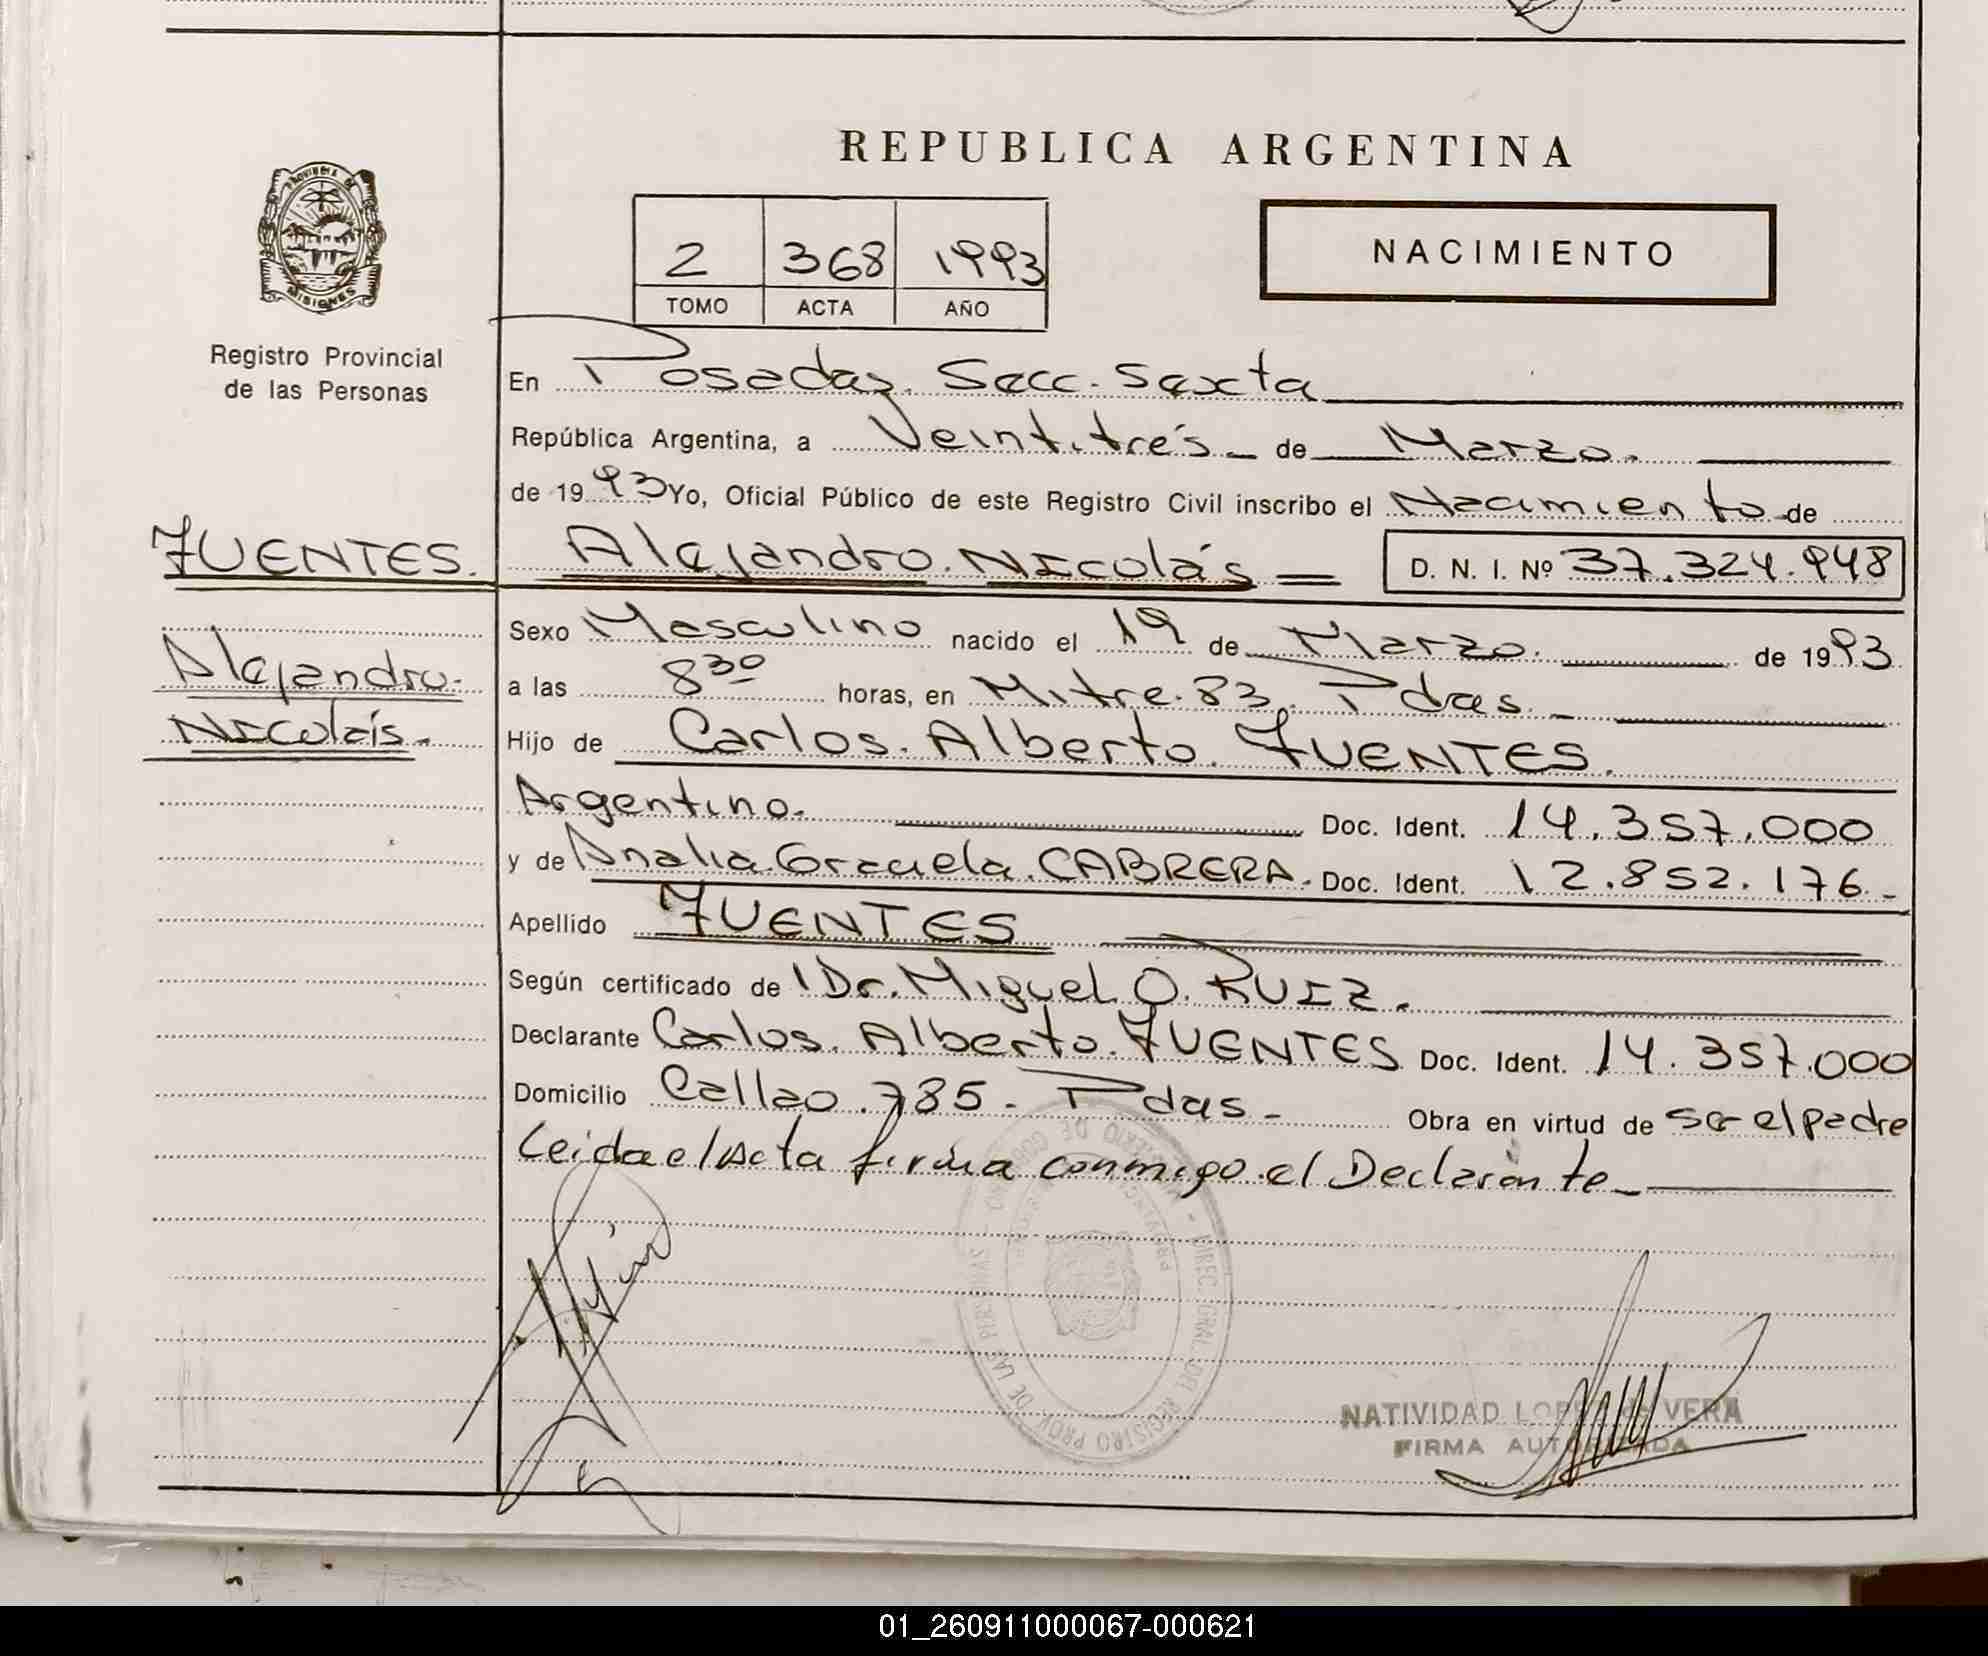 REPUBLICA ARGENTINA
PROVINCIA DE
MISIONES
Registro Provincial
de las Personas
2 368 1993
TOMO ACTA AÑO
NACIMIENTO
En Posadas. Secc. Sexta
República Argentina, a Veintitrés de Marzo.
de 1993 Yo, Oficial Público de este Registro Civil inscribo el Nacimiento de
FUENTES. Alejandro. Nicolás D. N. I. Nº 37.324.948
Alejandro.
Nicolás.
Sexo Masculino nacido el 19 de Marzo. de 1993
a las 8 30 horas, en Mitre. 83. Pdas.
Hijo de Carlos. Alberto. FUENTES.
Argentino. Doc. Ident. 14.357.000
y de Analia. Graciela. CABRERA. Doc. Ident. 12.852.176.-
Apellido FUENTES
Según certificado de Dr. Miguel. O. RUIZ.
Declarante Carlos. Alberto. FUENTES Doc. Ident. 14.357.000
Domicilio Callao. 785 - Pdas - Obra en virtud de ser el padre
Leida el Acta firma conmigo el Declarante
NATIVIDAD LOPEZ VERA
FIRMA AUTORIZADA
01_260911000067-000621